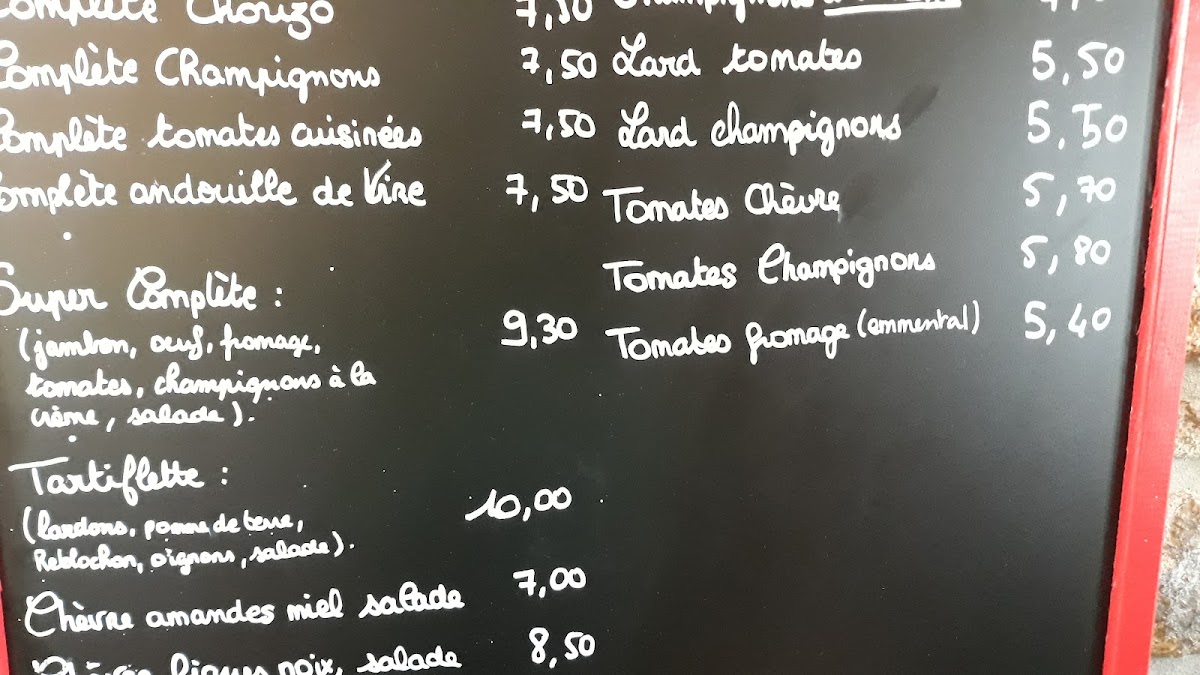 Complète Chorizo 7,50
Complète Champignons 7,50
Complète tomates cuisinées 7,50
Complète andouille de Vire 7,50
Super Complète : 9,30
(jambon, œuf, fromage,
tomates, champignons à la
crème, salade).
Tartiflette : 10,00
(lardons, pomme de terre,
Reblochon, oignons, salade).
Chèvre amandes miel salade 7,00
Chèvre figues noix, salade 8,50
Champignons
Lard tomates 5,50
Lard champignons 5,50
Tomates Chèvre 5,70
Tomates Champignons 5,80
Tomates fromage (emmental) 5,40